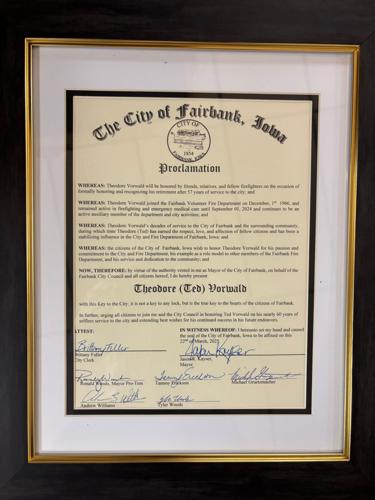 The City of Fairbank, Iowa
CITY OF
1854
FAIRBANK, IOWA
Proclamation
WHEREAS: Theodore Vorwald will be honored by friends, relatives, and fellow firefighters on the occasion of
formally honoring and recognizing his retirement after 57 years of service to the city; and
WHEREAS: Theodore Vorwald joined the Fairbank Volunteer Fire Department on December, 1st 1966, and
remained active in firefighting and emergency medical care until September 01, 2024 and continues to be an
active auxiliary member of the department and city activities; and
WHEREAS: Theodore Vorwald's decades of service to the City and the surrounding community,
during which time Theodore (Ted) has earned the respect, love, and affection of fellow citizens and has been a
stabilizing influence in the City and Fire Department of Fairbank, Iowa: and
WHEREAS: the citizens of the City of Fairbank, Iowa wish to honor Theodore Vorwald for his passion and
commitment to the City and Fire Department, his example as a role model to other members of the Fairbank Fire
Department, and his service and dedication to the community; and
NOW, THEREFORE: by virtue of the authority vested in me as Mayor of the City of Fairbank, on behalf of the
Fairbank City Council and all citizens hereof, I do hereby present
Theodore (Ted) Vorwald
with this Key to the City; it is not a key to any lock, but is the true key to the hearts of the citizens of Fairbank.
In further, urging all citizens to join me and the City Council in honoring Ted Vorwald on his nearly 60 years of
selfless service to the city and extending best wishes for his continued success in his future endeavors.
ATTEST:
IN WITNESS WHEREOF: I hereunto set my hand and caused
the seal of the City of Fairbank, Iowa to be affixed on this
22nd of March, 2025
Brittany Fuller
Brittany Fuller
City Clerk
Jason Kayser
Jason R. Kayser,
Mayor
Ronald Woods, Mayor Pro-Tem
Tammy Erickson
Tammy Erickson
Michael Gruetzmacher
Andrew Williams
Tyler Woods